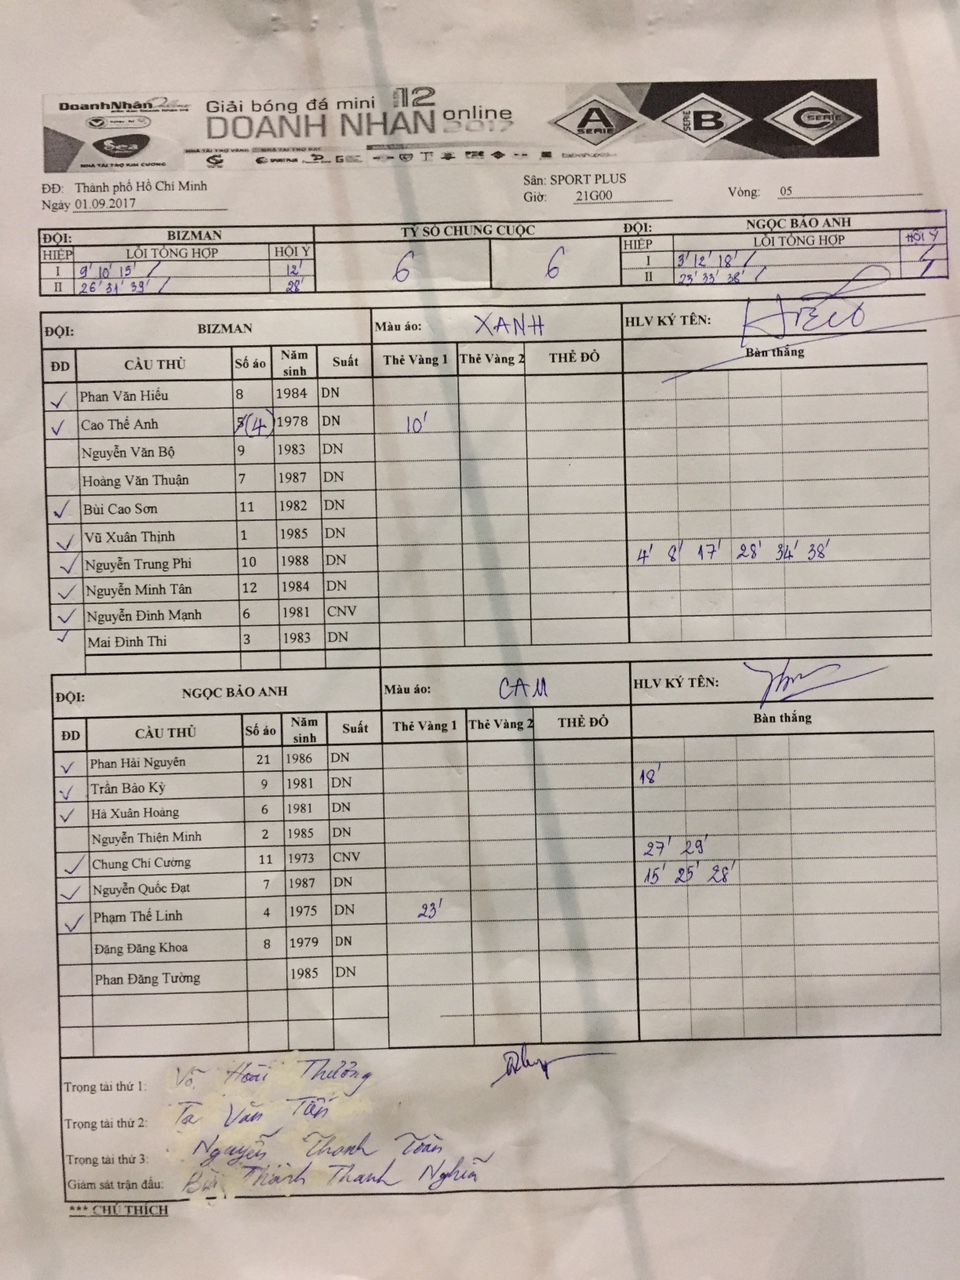 DoanhNhân Online
Giải bóng đá mini 12
DOANH NHÂN online 2017
Sea
NHÀ TÀI TRỢ KIM CƯƠNG
NHÀ TÀI TRỢ VÀNG
A SERIE
SERIE B
C SERIE
ĐĐ: Thành phố Hồ Chí Minh
Ngày 01.09.2017
Sân: SPORT PLUS
Giờ: 21G00
Vòng: 05
ĐỘI: BIZMAN TỶ SỐ CHUNG CUỘC ĐỘI: NGỌC BẢO ANH
HIỆP LỖI TỔNG HỢP HỘI Ý 6 6 HIỆP LỖI TỔNG HỢP HỘI Ý
I 9' 10' 15' / 12' I 3' 12' 18' /
II 26' 31' 39' / 28' II 23' 33' 38' /
ĐỘI: BIZMAN Màu áo: XANH HLV KÝ TÊN:
ĐD CẦU THỦ Số áo Năm sinh Suất Thẻ Vàng 1 Thẻ Vàng 2 THẺ ĐỎ Bàn thắng
✓ Phan Văn Hiếu 8 1984 DN
✓ Cao Thế Anh 5 (4) 1978 DN 10'
Nguyễn Văn Bộ 9 1983 DN
Hoàng Văn Thuận 7 1987 DN
✓ Bùi Cao Sơn 11 1982 DN
✓ Vũ Xuân Thịnh 1 1985 DN
✓ Nguyễn Trung Phi 10 1988 DN 4' 8' 17' 28' 34' 38'
✓ Nguyễn Minh Tân 12 1984 DN
✓ Nguyễn Đình Mạnh 6 1981 CNV
✓ Mai Đình Thi 3 1983 DN
ĐỘI: NGỌC BẢO ANH Màu áo: CAM HLV KÝ TÊN:
ĐD CẦU THỦ Số áo Năm sinh Suất Thẻ Vàng 1 Thẻ Vàng 2 THẺ ĐỎ Bàn thắng
✓ Phan Hải Nguyên 21 1986 DN
✓ Trần Bảo Kỳ 9 1981 DN 18'
✓ Hà Xuân Hoàng 6 1981 DN
Nguyễn Thiện Minh 2 1985 DN
✓ Chung Chí Cường 11 1973 CNV 27' 29'
✓ Nguyễn Quốc Đạt 7 1987 DN 15' 25' 28'
✓ Phạm Thế Linh 4 1975 DN 23'
Đặng Đăng Khoa 8 1979 DN
Phan Đăng Tường 1985 DN
Trọng tài thứ 1: Võ Hoài Thương
Trọng tài thứ 2: Tạ Văn Tấn
Trọng tài thứ 3: Nguyễn Thanh Toàn
Giám sát trận đấu: Bùi Thành Thanh Nghĩa
*** CHÚ THÍCH